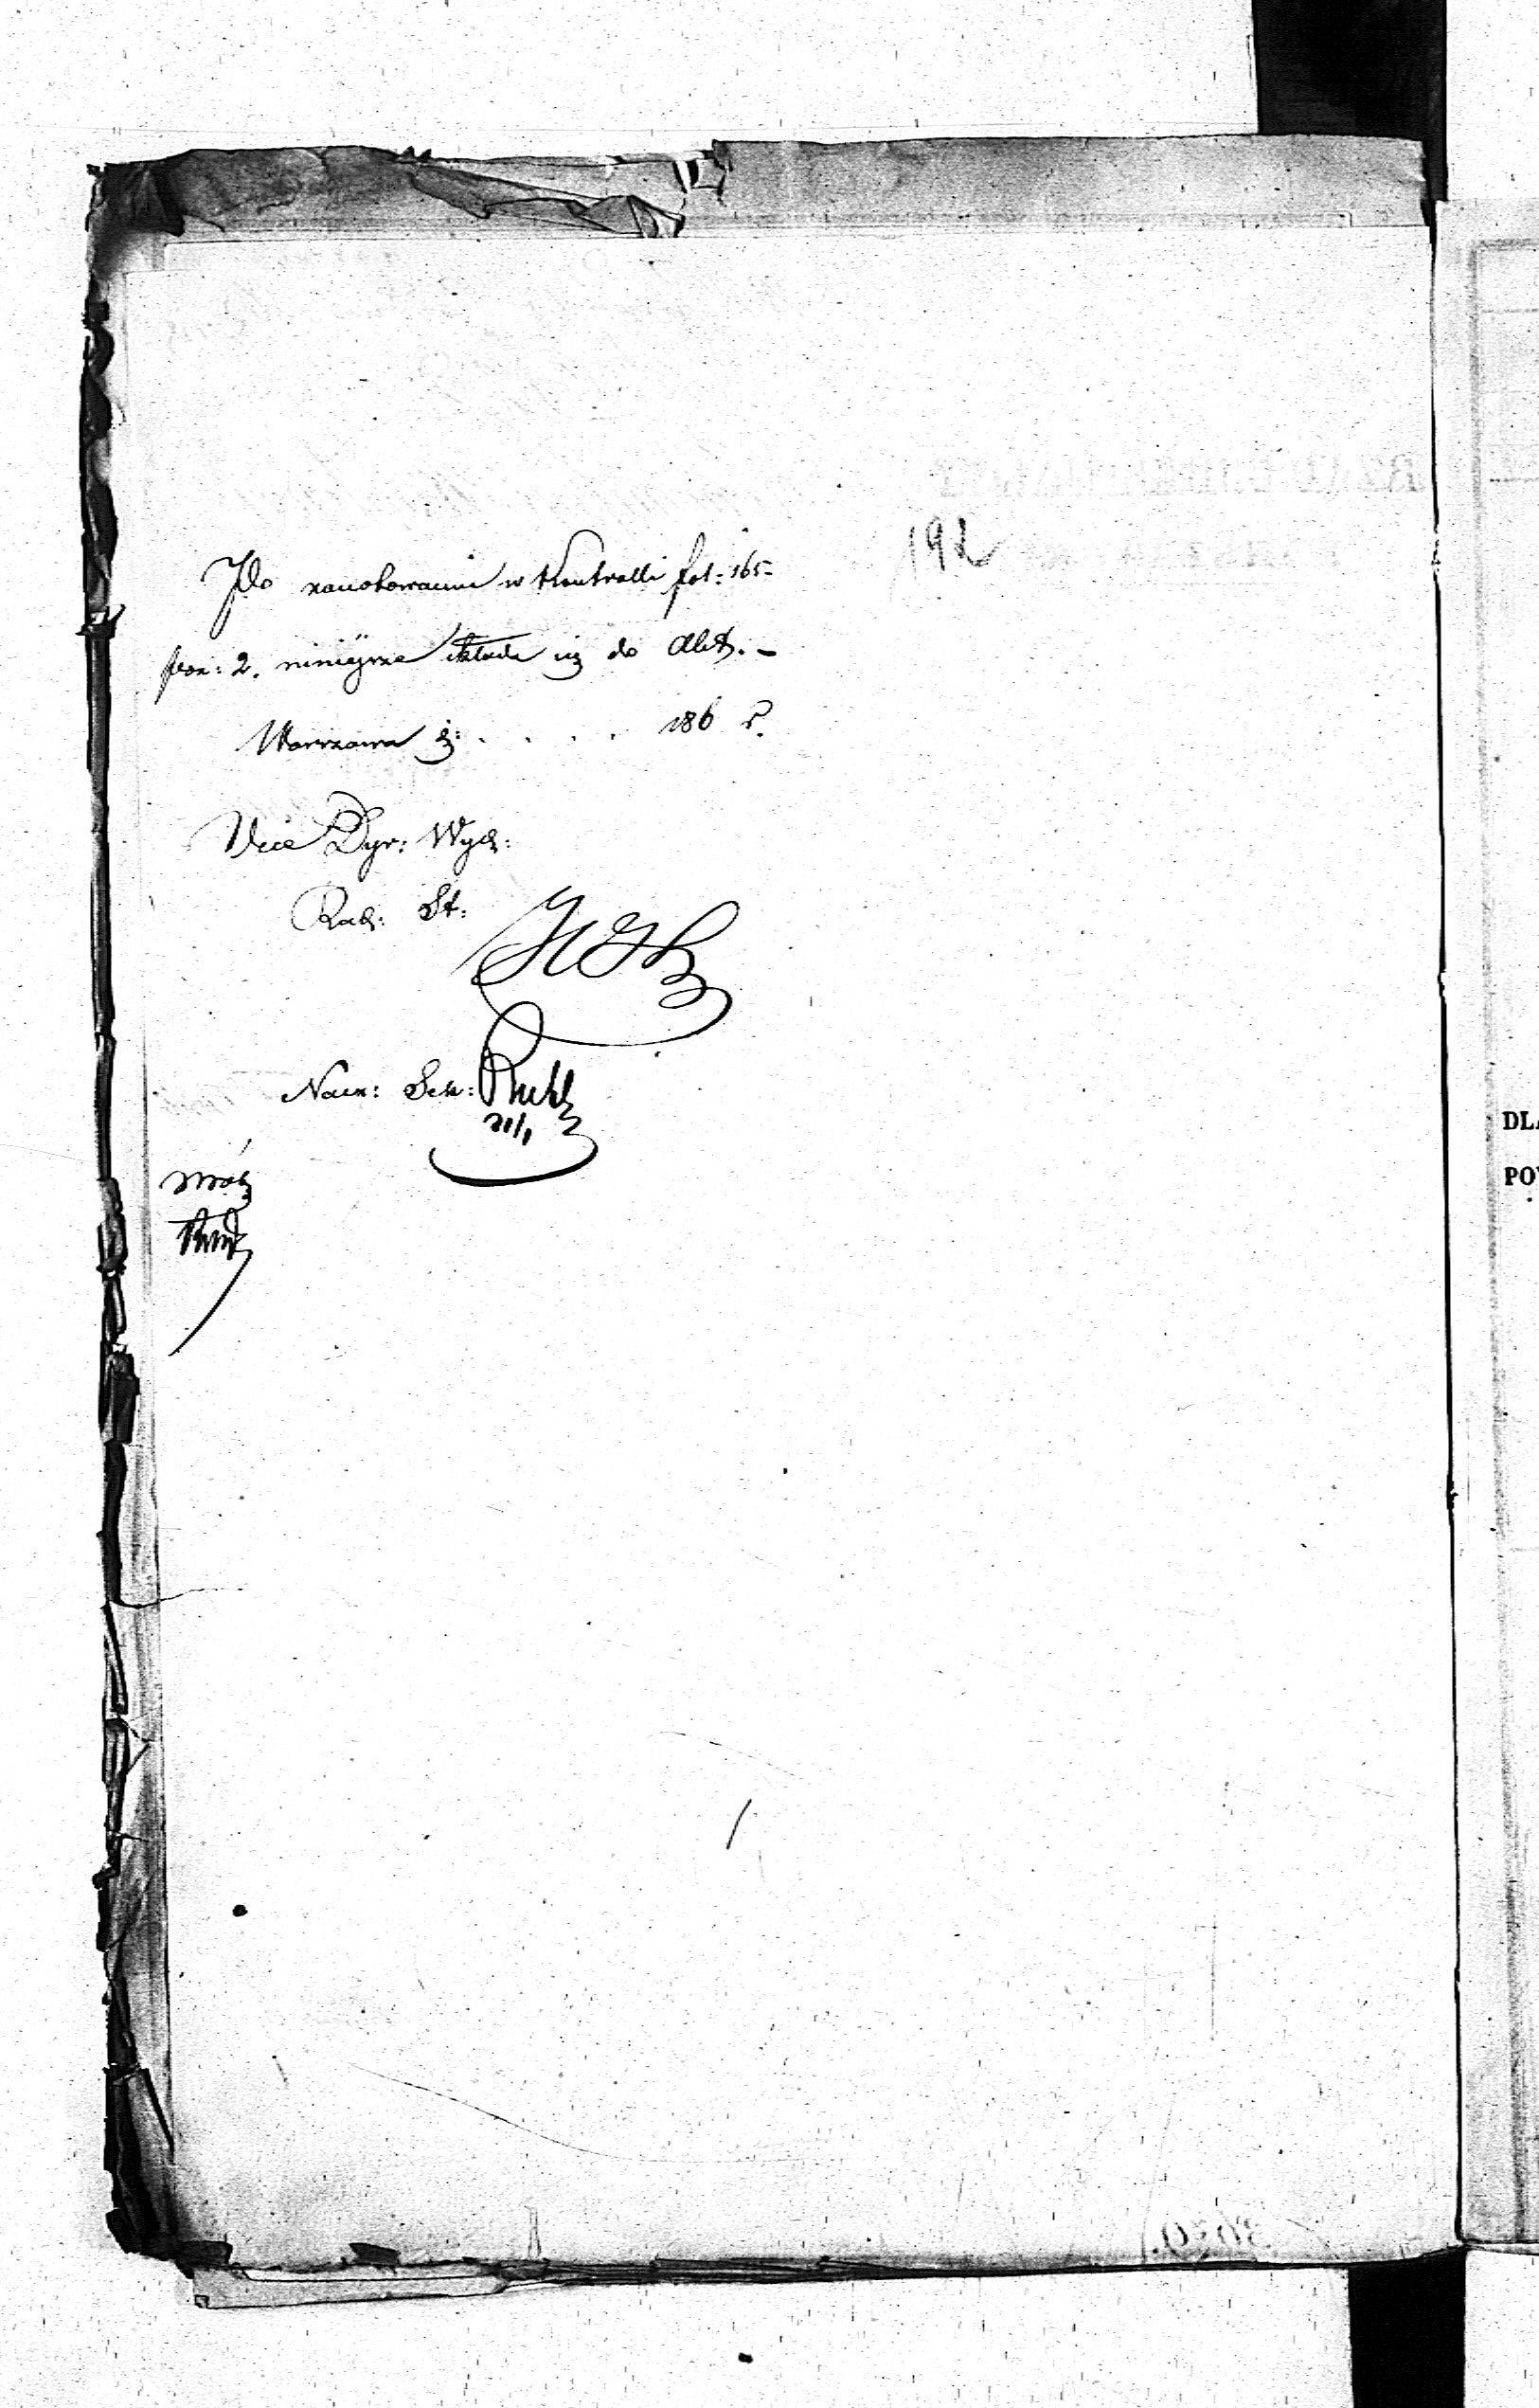 192
Po zanotowaniu w Kontrolli fol: 165
poz: 2. niniejsze składa się do Akt. –
Warszawa d: . . . . 186 r.
Vice Dyr: Wydz:
Rad: St:
Nacz: Sek:
21/1
DLA